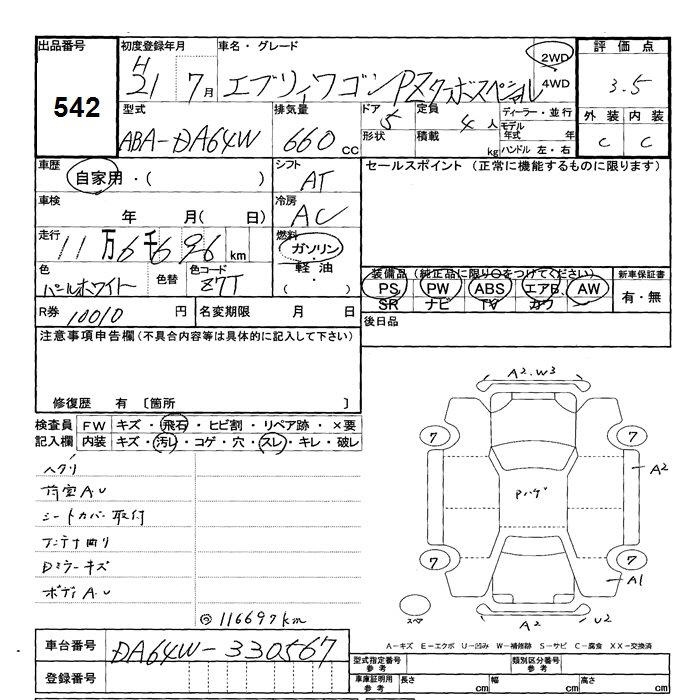 出品番号 初度登録年月 車名・グレード 評価点
542
H 21 7月 エブリィワゴンPZターボスペシャル 2WD 4WD 3.5
型式 排気量 ドア 定員 ディーラー・並行 外装 内装
ABA-DA64W 660 cc 5 4人 モデル年式 年 C C
形状 積載 kg ハンドル 左・右
車歴 シフト セールスポイント (正常に機能するものに限ります)
自家用・( ) AT
車検 冷房
年 月( 日) AC
走行 燃料
11万6千696 km ガソリン・軽油・( )
色 色替 色コード 装備品 (純正品に限り○をつけてください) 新車保証書
パールホワイト Z7T PS PW ABS エアB. AW 有・無
SR ナビ TV カワ
R券 10010 円 名変期限 月 日 後日品
注意事項申告欄(不具合内容等は具体的に記入して下さい)
修復歴 有 〔箇所 〕
検査員 FW キズ・飛石・ヒビ割・リペア跡・×要
記入欄 内装 キズ・汚レ・コゲ・穴・スレ・キレ・破レ
ヘタリ
荷室A.U
シートカバー取付
アンテナ曲り
Dミラーキズ
ボディA.U
116697km
A2.W3
7 7
A2
Pハゲ
7 7
A1
スペア
A2 U2
A-キズ E-エクボ U-凹み W-補修跡 S-サビ C-腐食 XX-交換済
車台番号 DA64W-330567
登録番号
型式指定番号 参考 類別区分番号 参考
車庫証明用 参考 長さ cm 幅 cm 高さ cm